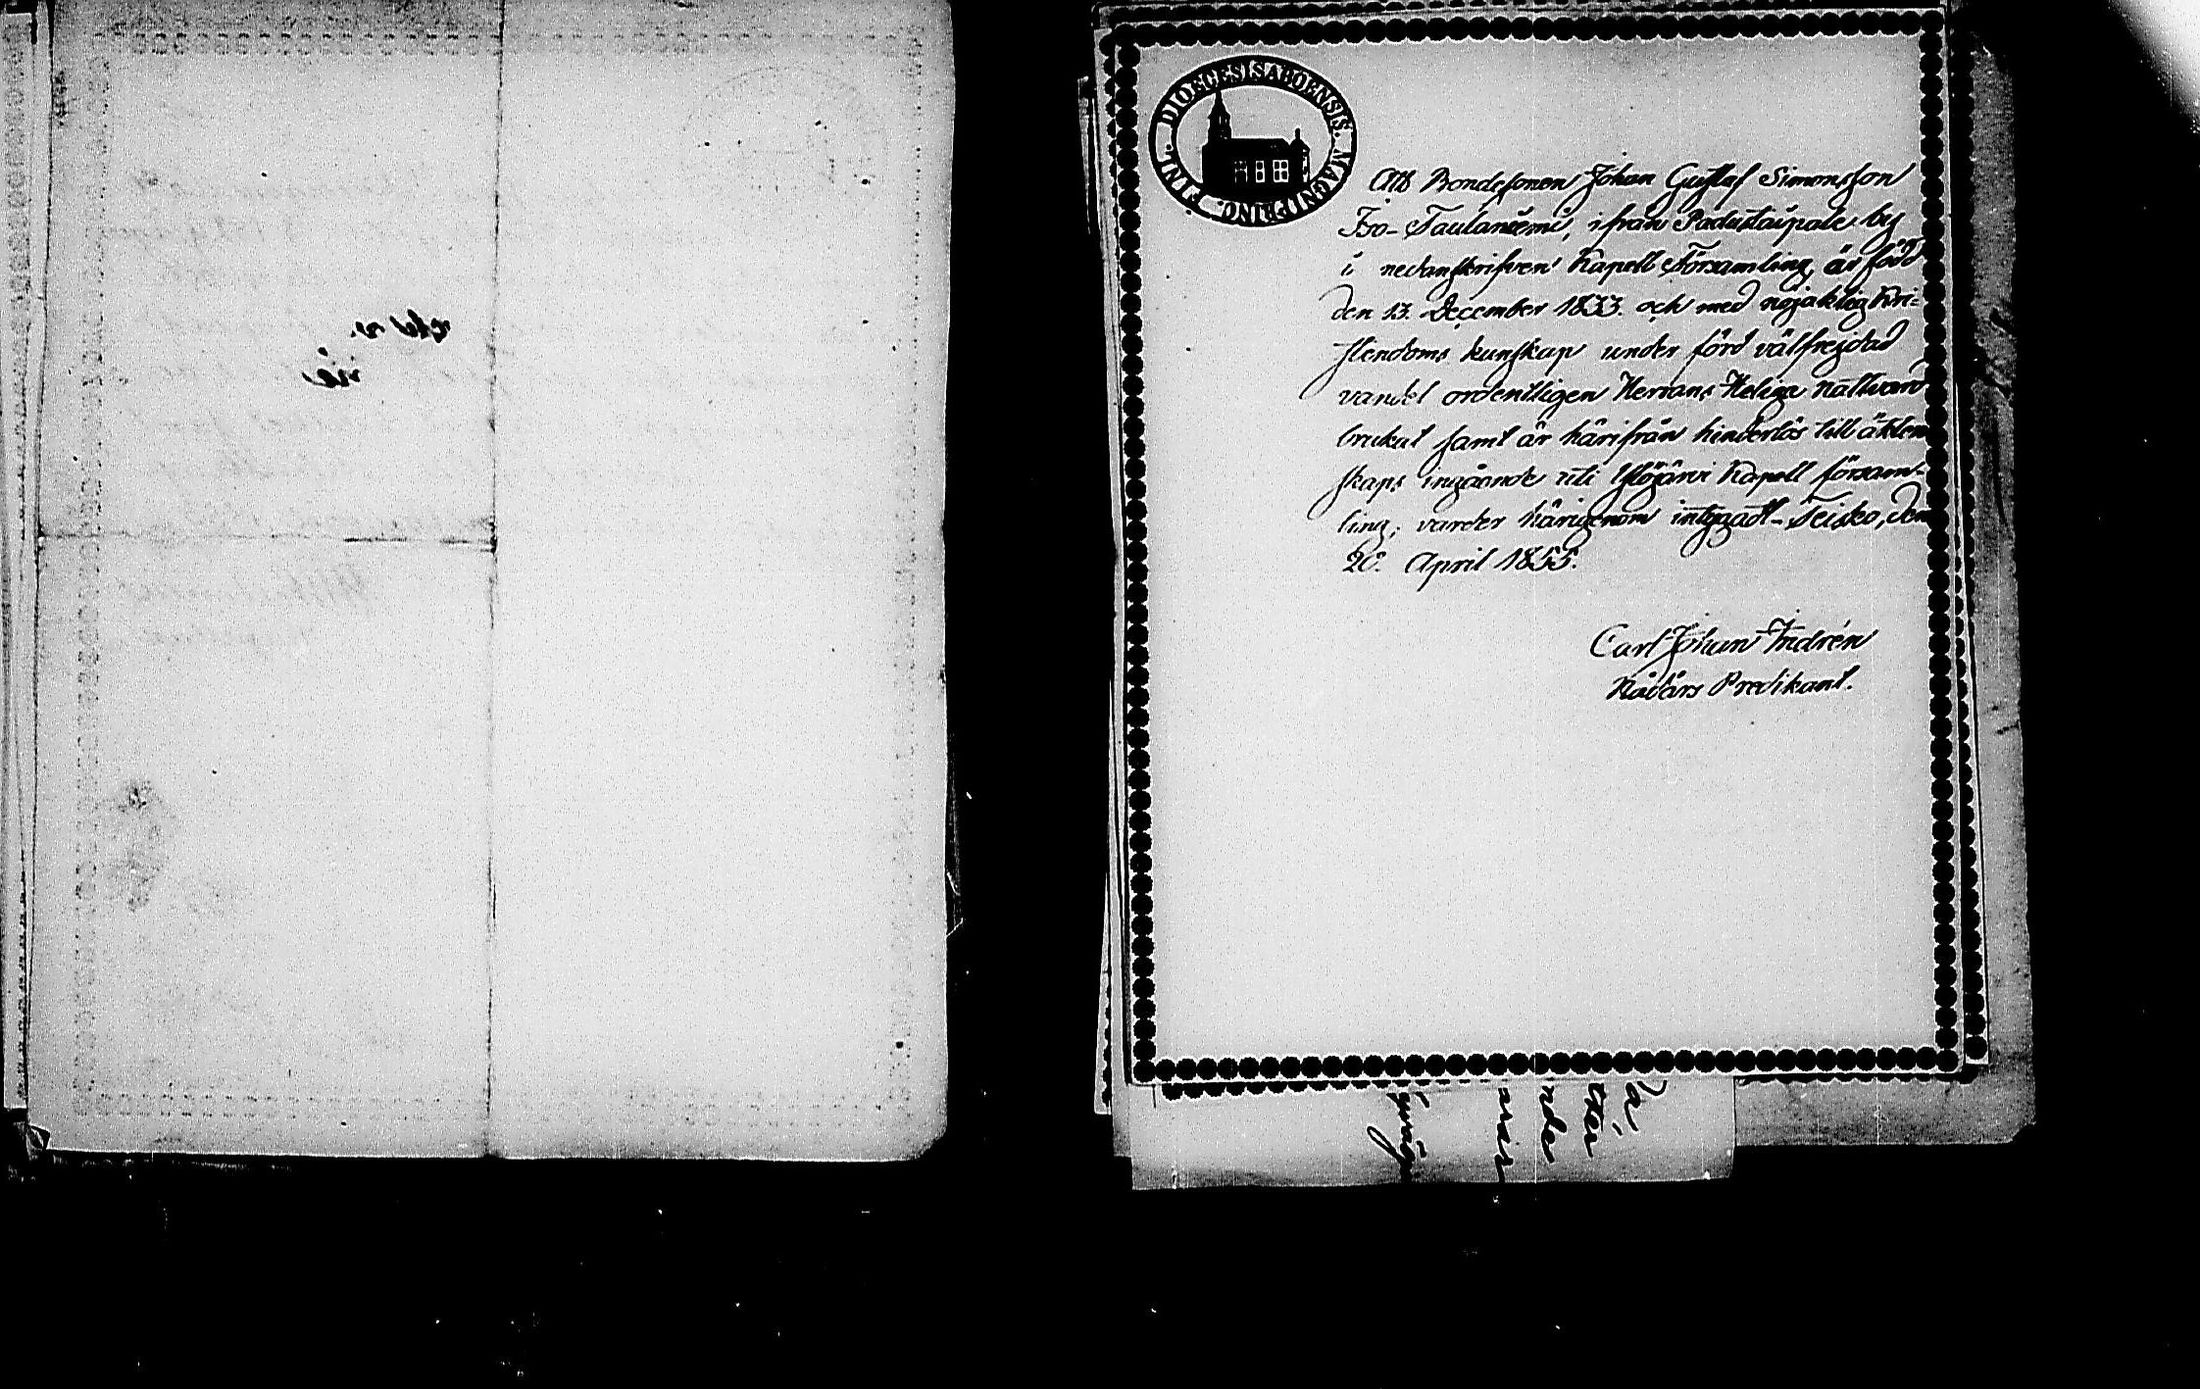 DIOECESIS ABOENSIS. MAGNI PRINC. FINL.
Att Bondesonen Johan Gustaf Simonsson
Iso-Taulaniemi, ifrån Padustaipale by
i nedanskrifven Kapell Församling, är född
den 13. December 1833. och med nöjaktig Kri-
stendoms kunskap under förd välfrejdad
vandel ordentligen Herrans Heliga Nattvard
brukat samt är härifrån hinderlös till äkten
skaps ingående uti Ylöjärvi Kapell försam-
ling; varder härigenom intygadt - Teisko, den
20. April 1855.
Carl Johan Andrén
Nådårs Predikant.